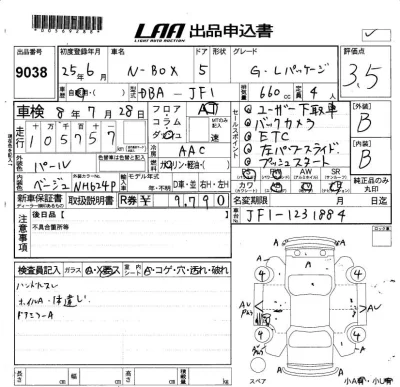 LAA 出品申込書
LIGHT AUTO AUCTION
出品番号
9038
初度登録年月
25年6月
車名
N-BOX
ドア
5
グレード
G・Lパッケージ
評価点
3.5
車歴
型式
DBA-JF1
排気量
660cc
定員
4人
車検
8年7月28日
フロア
コラム
ダッシュ
AT
セールスポイント
ユーザー下取車
バックカメラ
ETC
左パワースライド
プッシュスタート
外装
B
内装
B
走行
105757
冷房
AAC
外装色
パール
燃料
ガソリン・軽油
内装色
ベージュ
外装カラーNo.
NH624P
輸入車
モデル年式
年
D車・並
右H・左H
PS
PW
AW
SR
カワ
純正品のみ丸印
新車保証書
取扱説明書
R券
¥9,790
名変期限
月
日迄
注意事項
後日品
不具合箇所等
JF1-1231884
検査員記入
ガラス
A・X要ス
内シート
A・コゲ・穴・汚れ・破れ
ハンドルスレ
ホイルA・体違し
ドアミラーA
A
4
4
4
4
AU
AU
A
スペア
長さ
cm
幅
cm
高さ
cm
積載量
kg
小A有、小U有